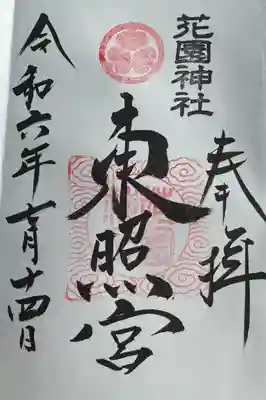 花園神社
奉拝
東照宮
令和六年十一月十四日